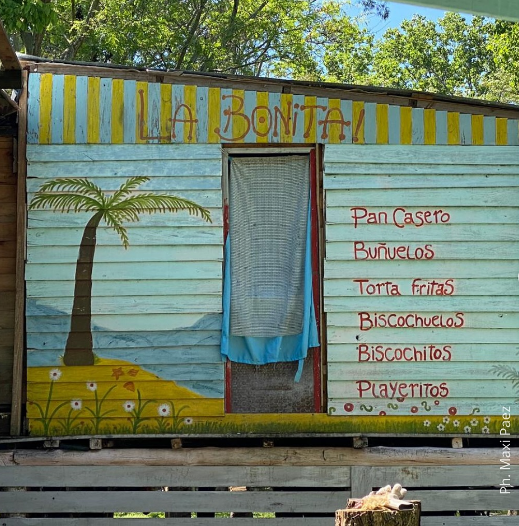 LA BONITA!
Pan Casero
Buñuelos
Torta fritas
Biscochuelos
Biscochitos
Playeritos
Ph. Maxi Paez